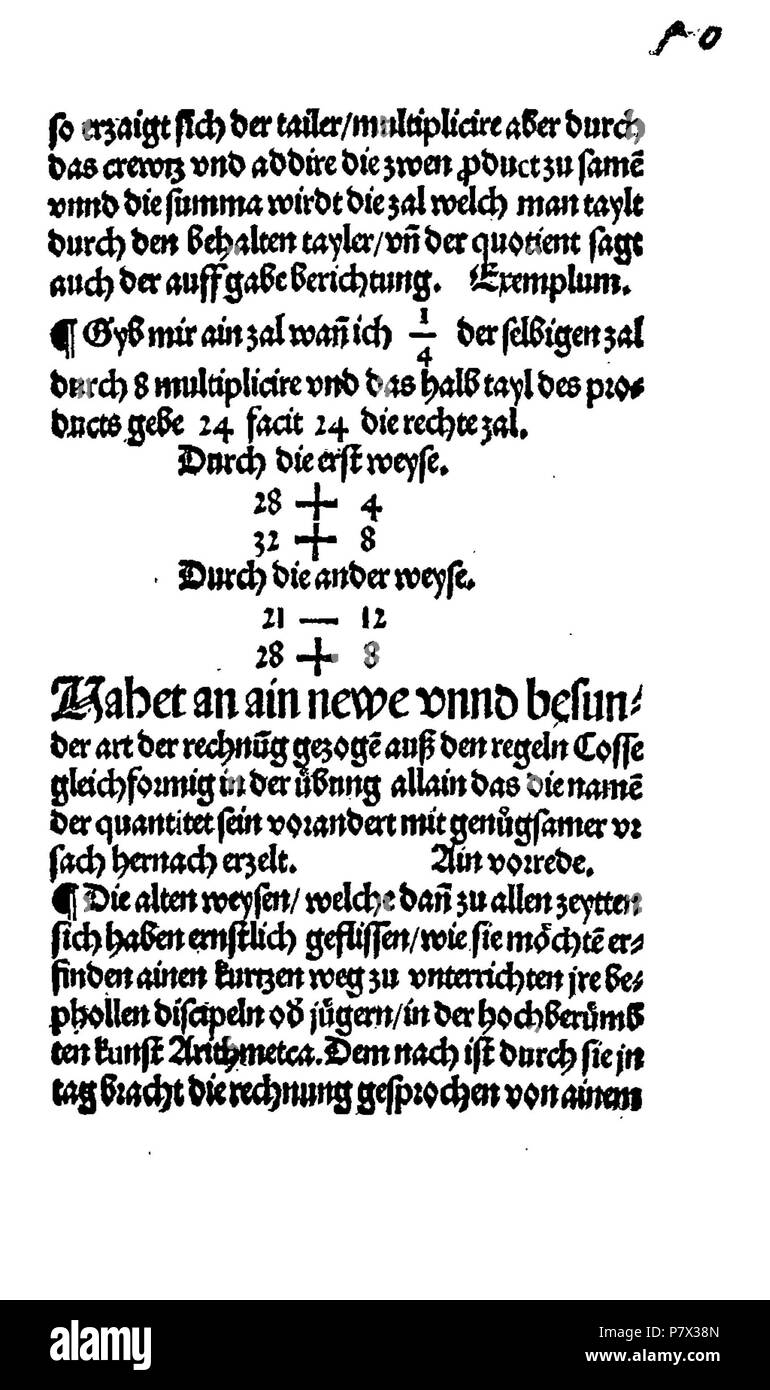 50
so erzaigt sich der tailer/multiplicire aber durch
das crewtz vnd addire die zwen ꝓduct zu samē
vnnd die summa wirdt die zal welch man taylt
durch den behalten tayler/vn̄ der quotient sagt
auch der auffgabe berichtung. Exemplum.
¶ Gyb mir ain zal wan̄ ich 1/4 der selbigen zal
durch 8 multiplicire vnd das halb tayl des pro⸗
ducts gebe 24 facit 24 die rechte zal.
Durch die erst weyse.
28 + 4
32 + 8
Durch die ander weyse.
21 — 12
28 + 8
Hahet an ain newe vnnd besun⸗
der art der rechnūg gezogē auß den regeln Cosse
gleichformig in der uͤbung allain das die namē
der quantitet sein vorandert mit genuͤgsamer vr
sach hernach erzelt. Ain vorrede.
¶ Die alten weysen/ welche dan̄ zu allen zeytten
sich haben ernstlich geflissen/wie sie moͤchtē er⸗
finden ainen kurtzen weg zu vnterrichten jre be⸗
phollen discipeln od̄ jūgern/in der hochberuͤmb
ten kunst Arithmetca. Dem nach ist durch sie jn
tag bracht die rechnung gesprochen von ainem
alamy
Image ID: P7X38N
www.alamy.com